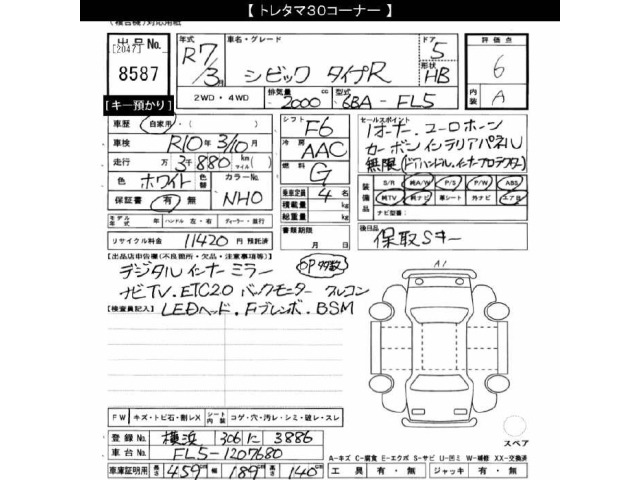 【 トレタマ30コーナー 】
(複合機)対応用紙
出品No. 年式 車名・グレード ドア 評価点
[2047] R7/3月 シビック タイプR 5 形状 HB 6
8587 2WD・4WD 排気量 2000 cc 型式 6BA-FL5 内装 A
[キー預かり]
車歴 自家用・( ) シフト F6 セールスポイント
車検 R10年3/10月 冷房 AAC 1オーナー、ユーロホーン
走行 万 3千880 km(マイル) 燃料 G カーボンインテリアパネル
色 ホワイト 色替 カラーNo. NH0 乗車定員 4 名 無限(ドアハンドル,インナープロテクター)
保証書 有 無 積載量 kg 装備品 S/R 純A/W P/S P/W ABS
総重量 kg 純TV 純ナビ 革シート 外ナビ エアB
モデル年式 年 ハンドル 左・右 ディーラー・並行 書類期限 ナビ型番:
リサイクル料金 11420 円 預託済 月 日 後日品 保取Sキー
[出品店申告欄(不良箇所・欠品・注意事項等)] OP多数
デジタルインナーミラー
ナビTV.ETC20 バックモニター フルコン
[検査員記入] LEDヘッド.Fブレンボ.BSM
A1
FW キズ・トビ石・割レX シート内装 コゲ・穴・汚レ・シミ・破レ・スレ
登録No. 横浜 306 に 3886 スペア
車台No. FL5-1207680 A-キズ C-腐食 E-エクボ S-サビ U-凹ミ W-補修 XX-交換済
車庫証明用 長さ 459cm 幅 189cm 高さ 140cm 工具 有・無 ジャッキ 有・無